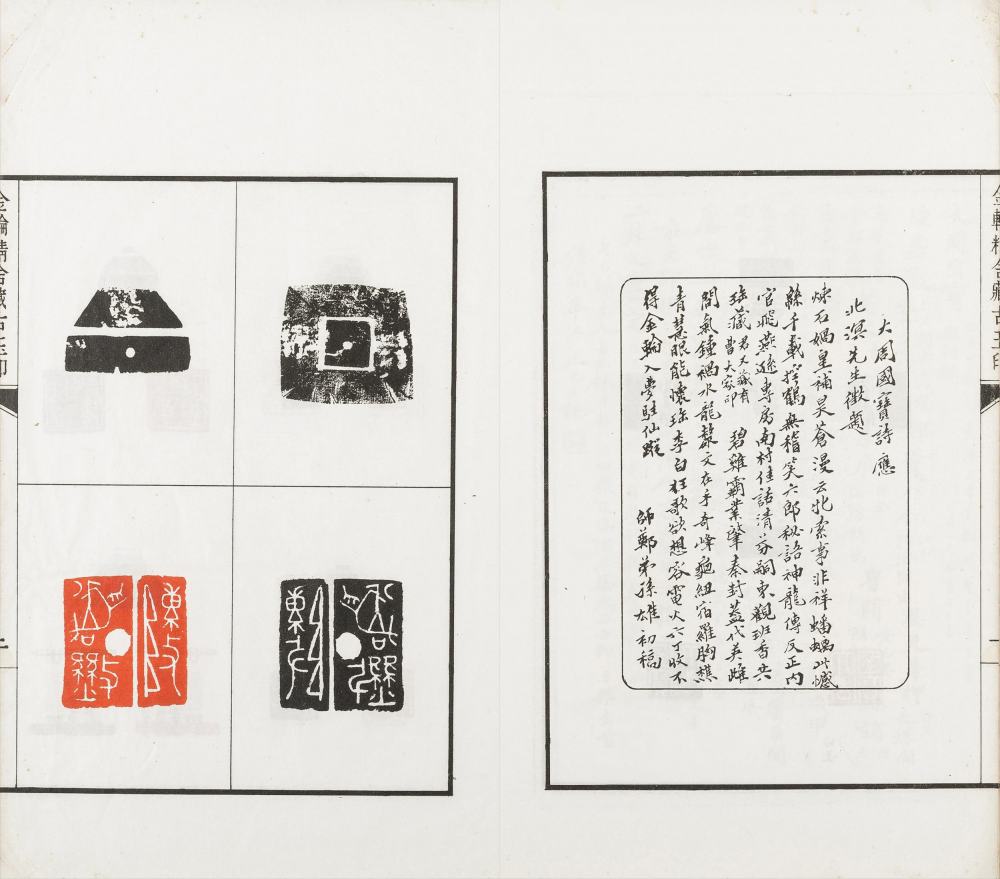 金輪精舍藏古玉印
大周國寶詩應
北溟先生徵題
煉石媧皇補昊蒼漫云北索事非祥蟠螭憾
絲千載控鶴無稽笑六郎秘語神龍傳反正內
官飛燕遜專房南村佳話清芬嗣東觀班香共
珍藏君又藏有曹大家印碧雞霸業肇秦封蓋代英雌
間氣鍾禍水龍漦文在手奇峰龜紐宿羅胸樵
青慧眼能懷珍李白狂歌欲想容雷火六丁收不
得金輪入夢駐仙蹤
師鄭弟孫雄初稿
金輪精舍藏古玉印